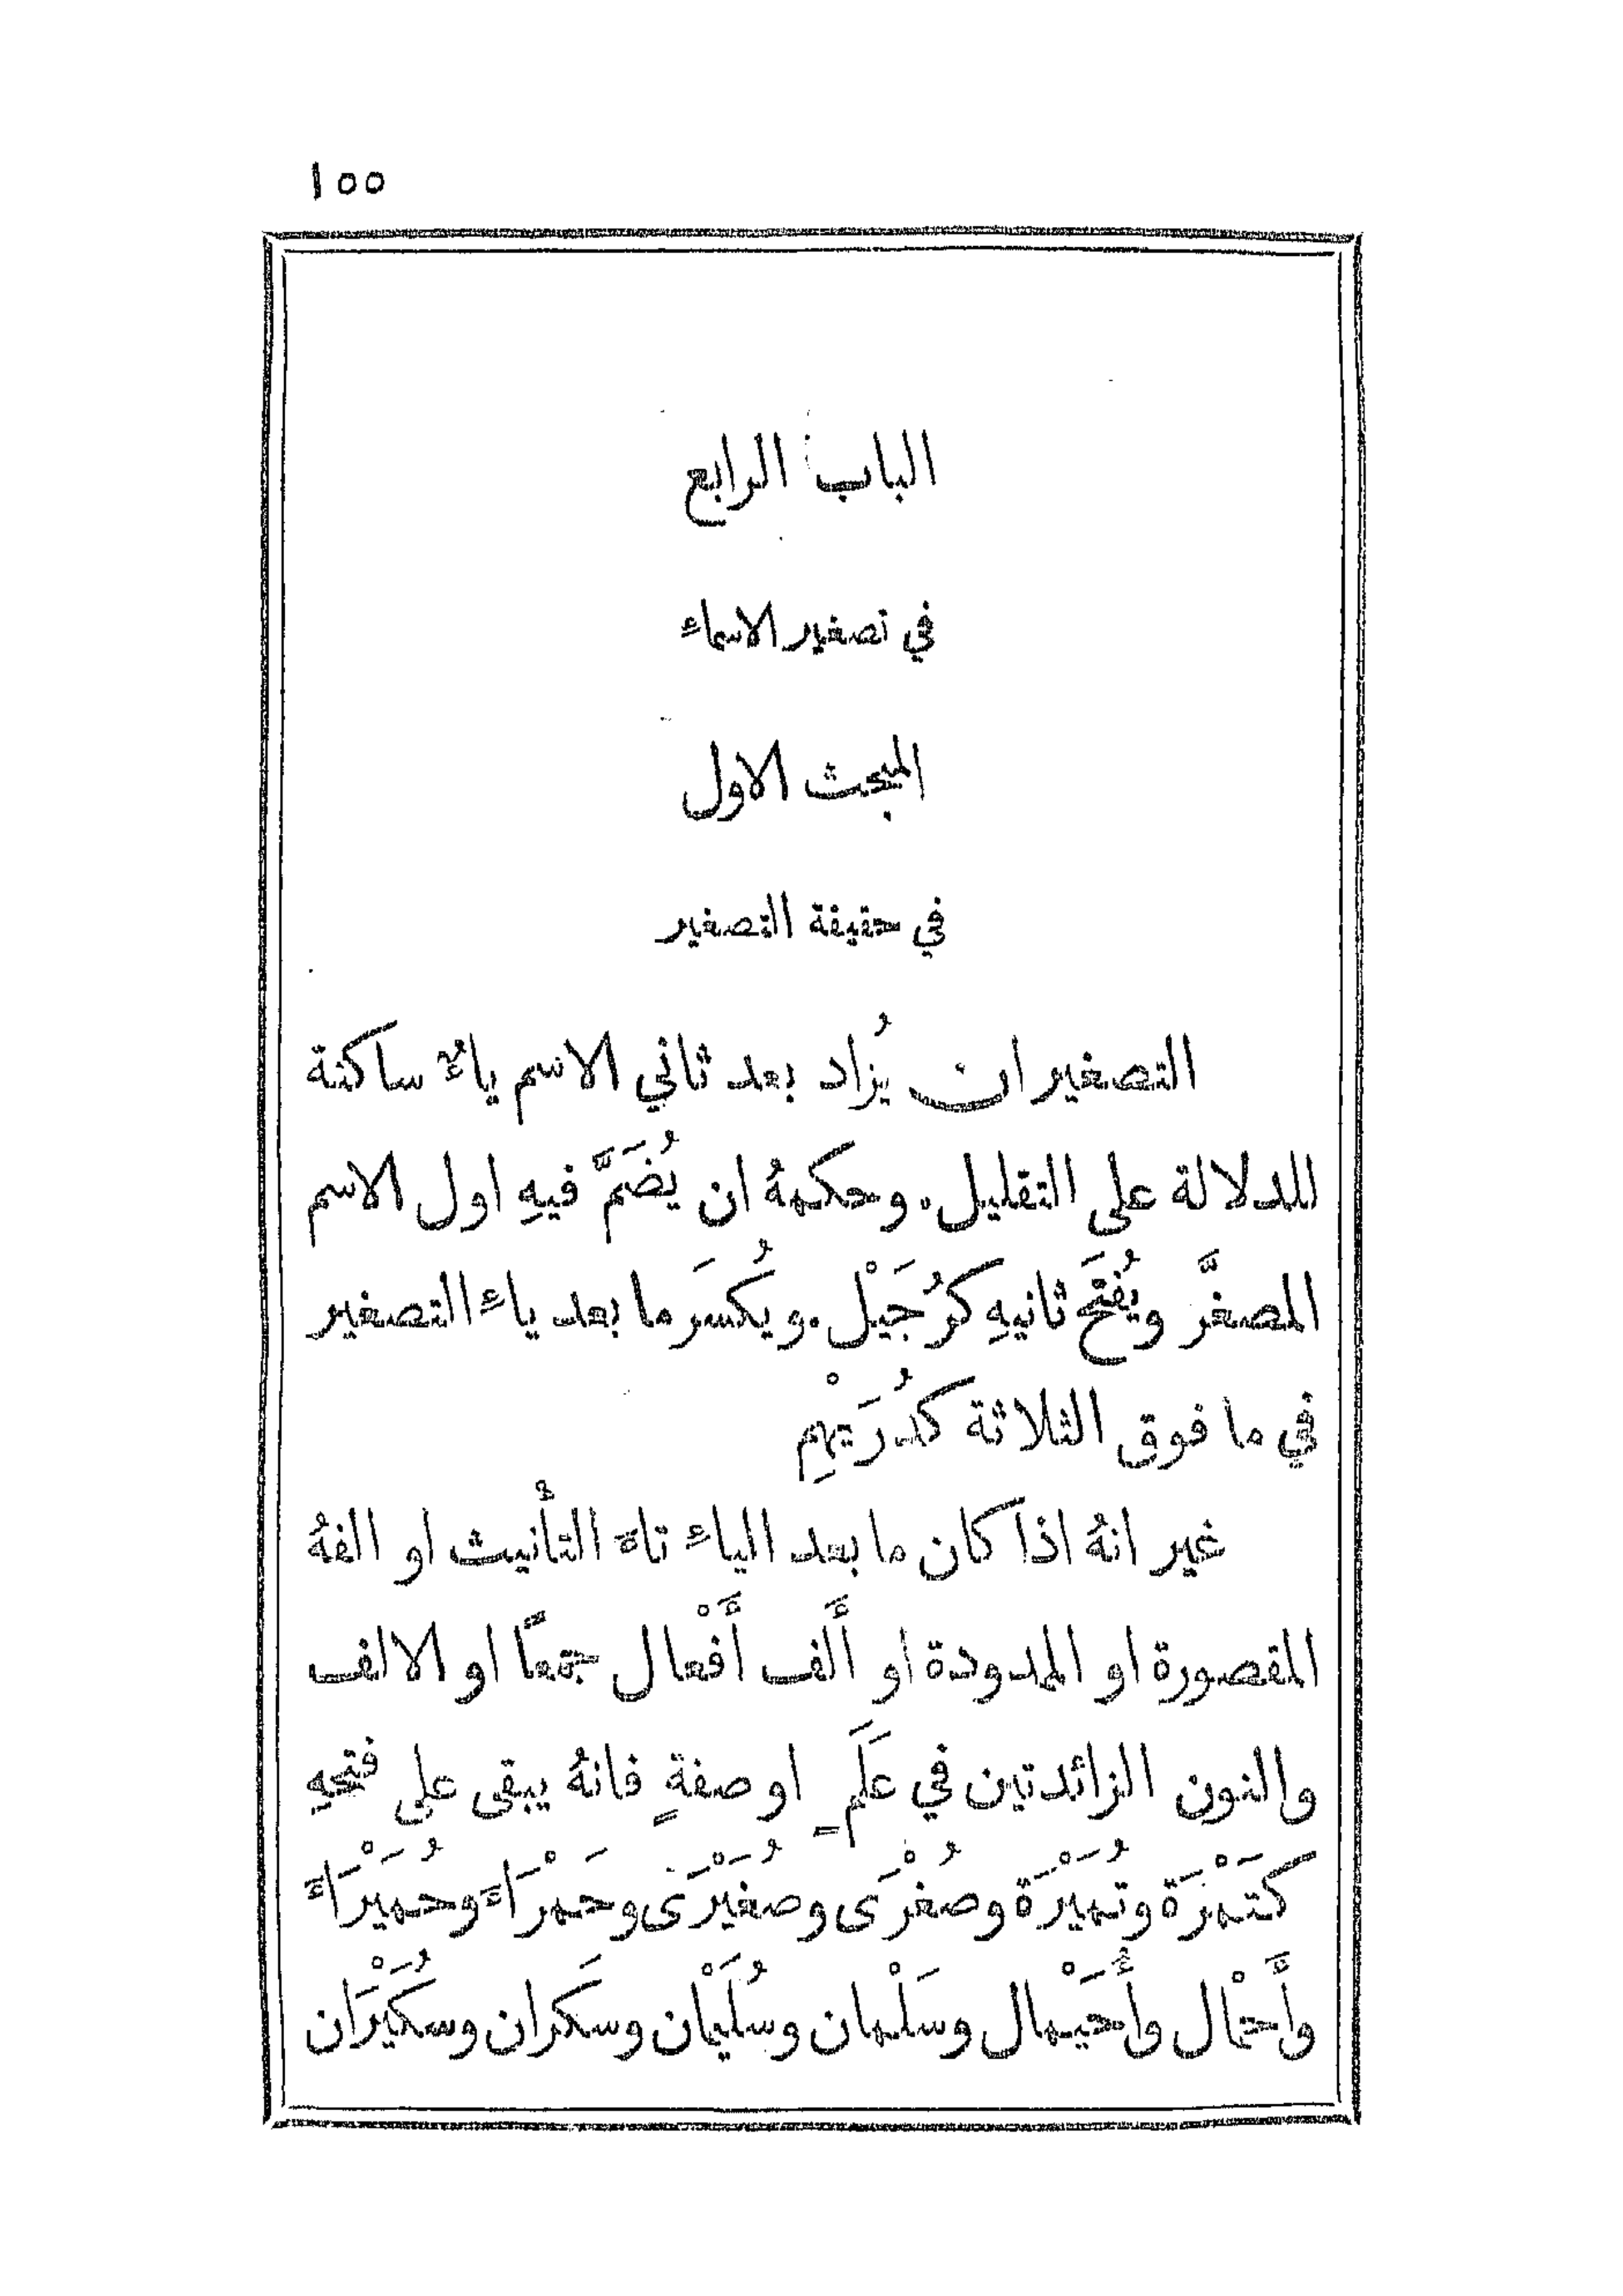 ١٥٥
الباب الرابع
في تصغير الاسماء
المبحث الاول
في حقيقة التصغير
التصغير ان يُزاد بعد ثاني الاسم ياءٌ ساكنة
للدلالة على التقليل. وحكمهُ ان يُضَمَّ فيهِ اول الاسم
المصغَّر ويُفتَح ثانيهِ كرُجَيْل. ويُكسَر ما بعد ياء التصغير
في ما فوق الثلاثة كدُرَيْهِم
غير انهُ اذا كان ما بعد الياء تاءَ التأنيث او الفهُ
المقصورة او الممدودة او أَلف أَفْعال جمعًا او الالف
والنون الزائدتين في عَلَمٍ او صفةٍ فانهُ يبقى على فتحهِ
كتَمْرَة وتُمَيْرَة وصُغْرَى وصُغَيْرَى وحَمْرَاءَ وحُمَيْرَاءَ
وأَحْمال وأُحَيْمال وسَلْمان وسُلَيْمان وسَكران وسُكَيْرَان